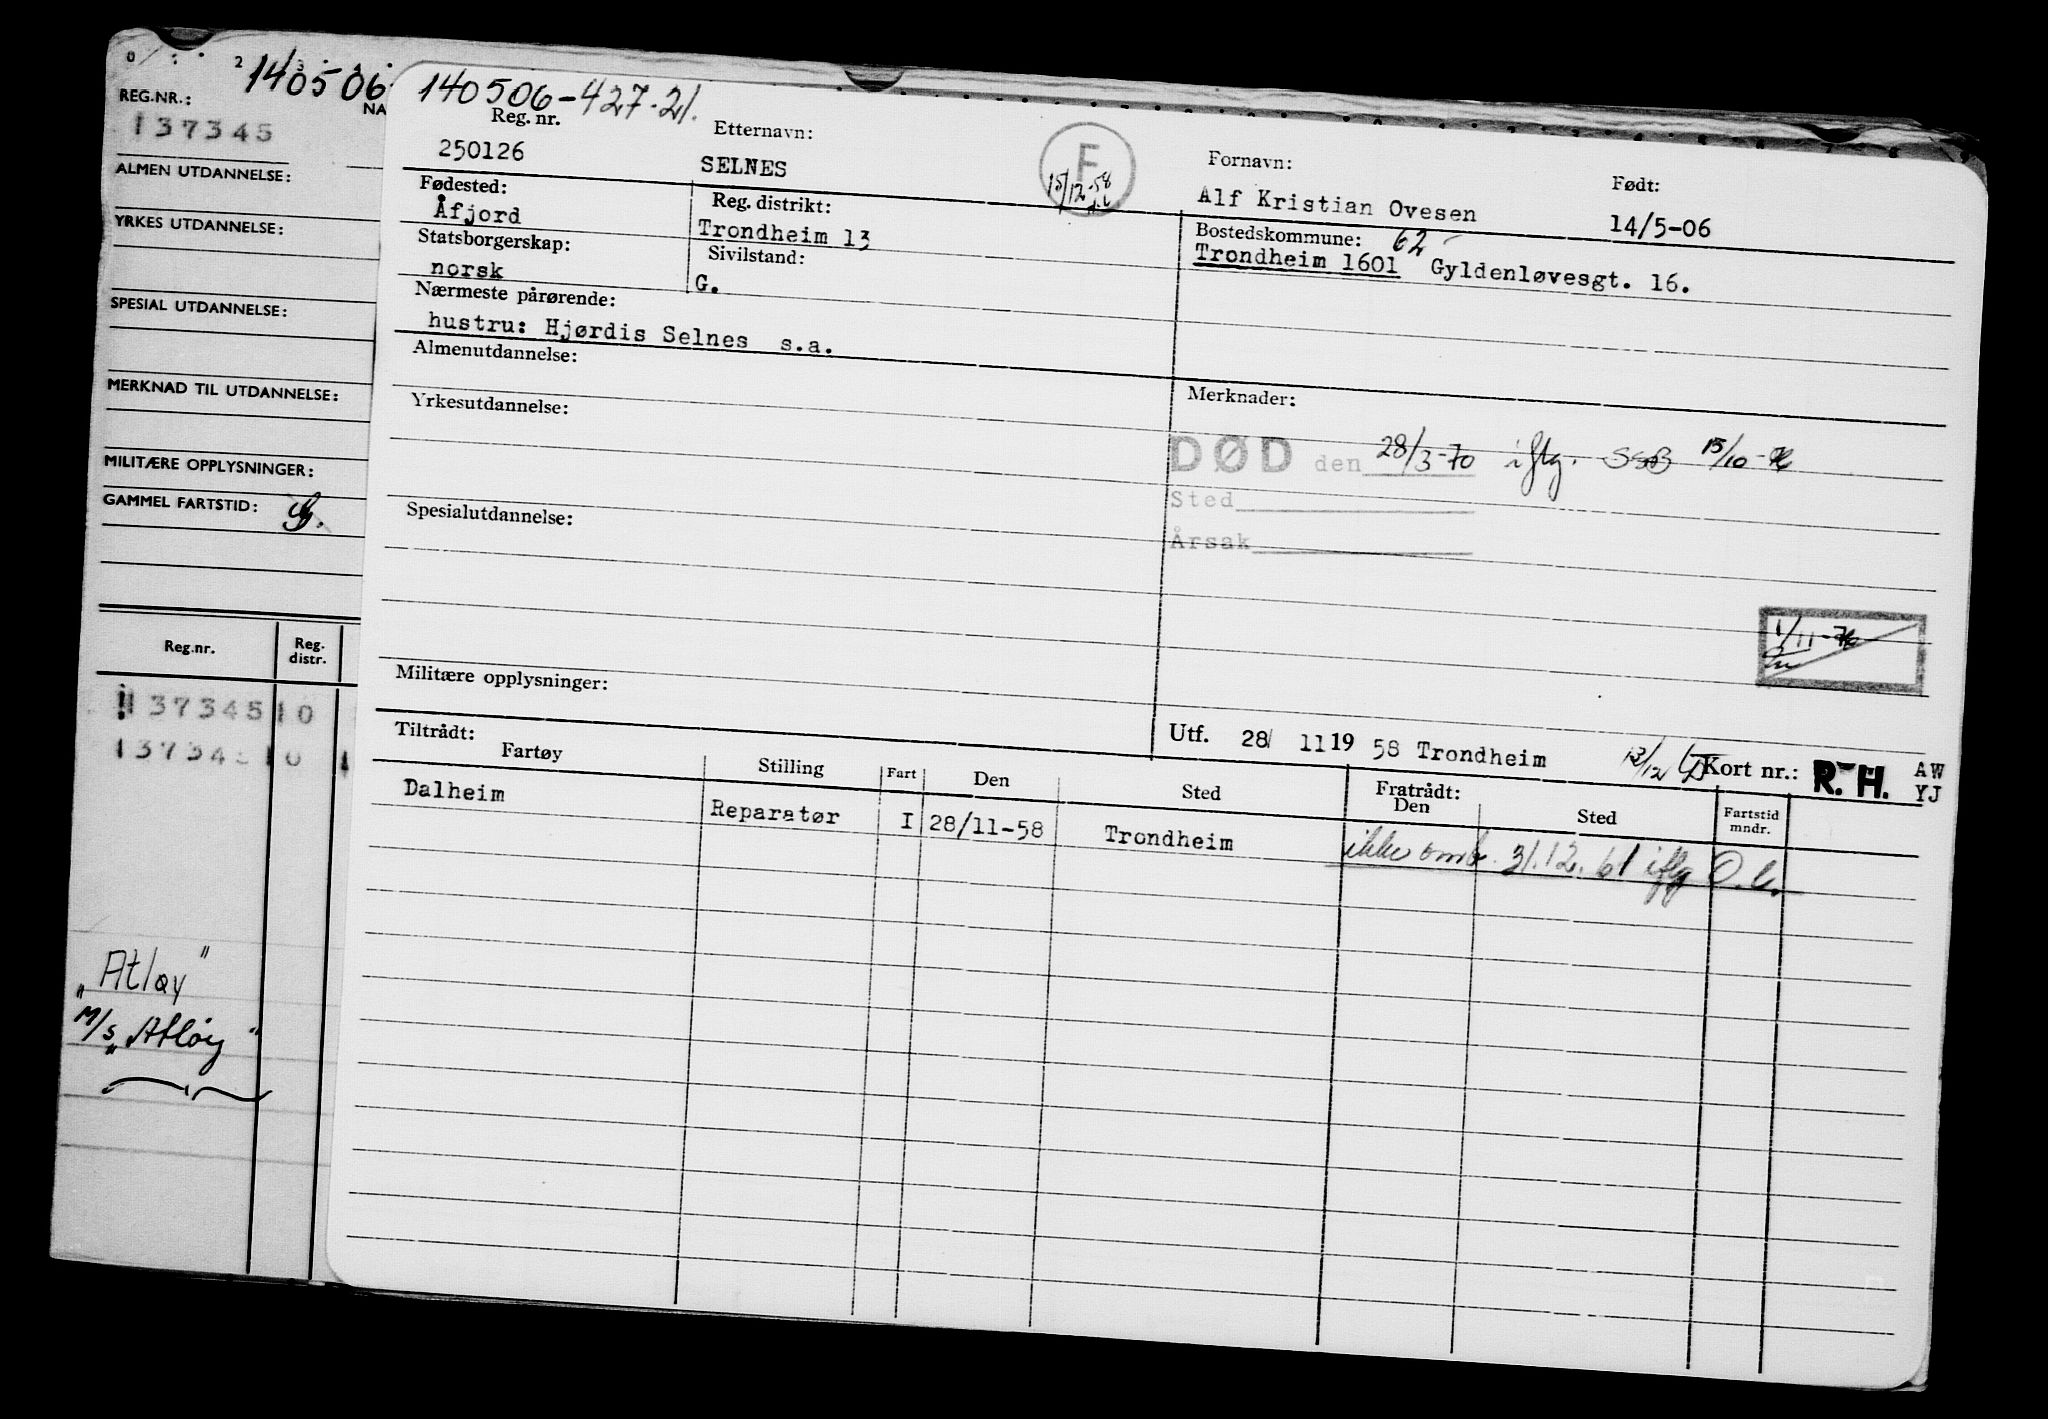 140506
REG.NR.:
NA
137345
ALMEN UTDANNELSE:
YRKES UTDANNELSE:
SPESIAL UTDANNELSE:
MERKNAD TIL UTDANNELSE:
MILITÆRE OPPLYSNINGER:
GAMMEL FARTSTID:
Reg.nr. Reg. distr.
137345 10
137345 10
"Atløy"
M/S "Atløy"
140506-427-21.
Reg. nr. Etternavn: Fornavn: Født:
250126 SELNES F Alf Kristian Ovesen 14/5-06
15/12-58
Fødested: Reg. distrikt: Bostedskommune: 62
Åfjord Trondheim 13 Trondheim 1601 Gyldenløvesgt. 16.
Statsborgerskap: Sivilstand:
norsk G.
Nærmeste pårørende:
hustru: Hjørdis Selnes s.a.
Almenutdannelse:
Merknader:
Yrkesutdannelse:
DØD den 28/3-70 iflg. SSB 15/10-
Sted
Årsak
Spesialutdannelse:
1/11-
Militære opplysninger:
Utf. 28/ 11 19 58 Trondheim 12/12 Kort nr.: R.H. AW
YJ
Tiltrådt: Fratrådt:
Fartøy Stilling Fart Den Sted Den Sted Fartstid mndr.
Dalheim Reparatør I 28/11-58 Trondheim ikke omb. 31.12.61 iflg O.